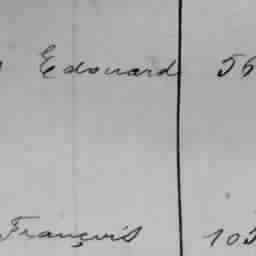 Edouard 56
François 105